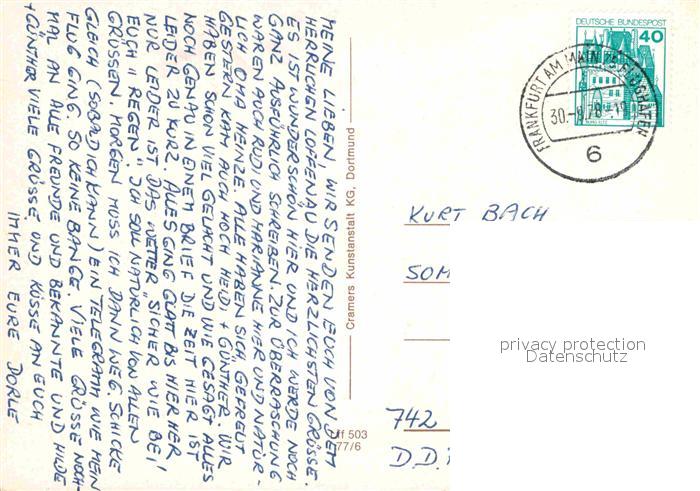 MEINE LIEBEN, WIR SENDEN EUCH VON DEM
HERRLICHEN LOFFENAU DIE HERZLICHSTEN GRÜSSE.
ES IST WUNDERSCHÖN HIER UND ICH WERDE NOCH
GANZ AUSFÜHRLICH SCHREIBEN. ZUR ÜBERRASCHUNG
WAREN AUCH RUDI UND MARIANNE HIER UND NATÜR-
LICH OMA HEINZE. ALLE HABEN SICH GEFREUT
GESTERN KAM AUCH NOCH HEIDI + GÜNTHER. WIR
HABEN SCHON VIEL GELACHT UND WIE GESAGT ALLES
NOCH GENAU IN EINEM BRIEF DIE ZEIT HIER IST
LEIDER ZU KURZ. ALLES GING GLATT BIS HIER HER
NUR LEIDER IST DAS WETTER „SICHER WIE BEI
EUCH" REGEN! ICH SOLL NATÜRLICH VON ALLEN
GRÜSSEN. MORGEN MUSS ICH DANN WEG. SCHICKE
GLEICH (SOBALD ICH KANN) EIN TELEGRAMM WIE MEIN
FLUG GING. SO KEINE BANGE. VIELE GRÜSSE NOCH-
MAL AN ALLE FREUNDE UND BEKANNTE UND HILDE
+ GÜNTHER VIELE GRÜSSE UND KÜSSE AN EUCH
IMMER EURE DORLE
Cramers Kunstanstalt KG, Dortmund
Off 503
77/6
DEUTSCHE BUNDESPOST
40
FRANKFURT AM MAIN FLUGHAFEN
6
KURT BACH
SOM
742
D.D.
privacy protection
Datenschutz